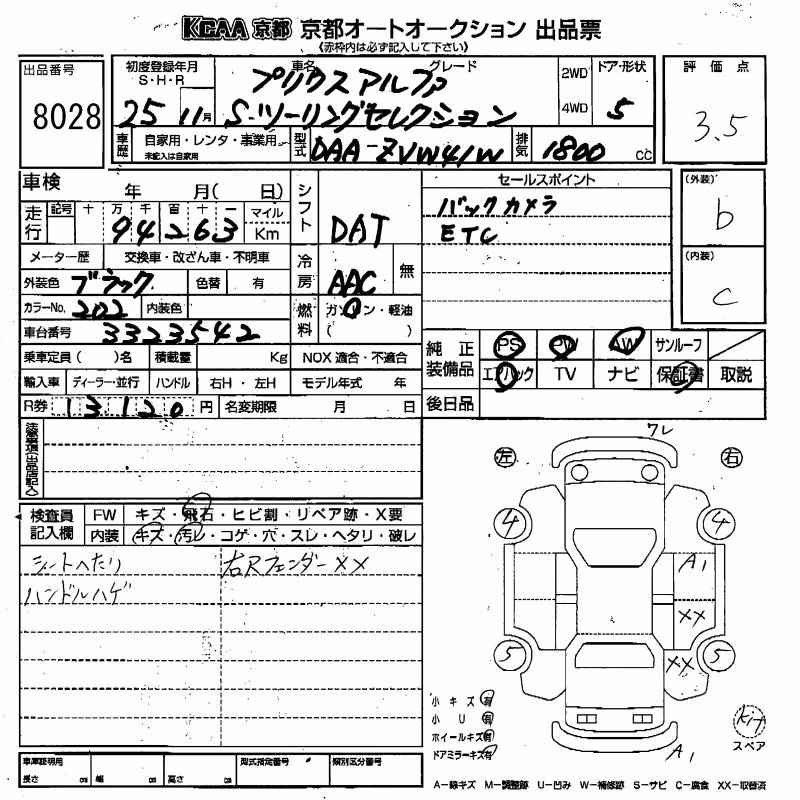 KCAA京都 京都オートオークション 出品票
《赤枠内は必ず記入して下さい》
出品番号
8028
初度登録年月
S・H・R
25 11月
車名 グレード
プリウスアルファ
S・ツーリングセレクション
2WD
4WD
ドア・形状
5
評価点
3.5
車歴
自家用・レンタ・事業用
未記入は自家用
型式
DAA-ZVW41W
排気
1800 cc
車検 年 月( 日)
走行
記号 十 万 千 百 十 一 マイル
94263 Km
シフト
DAT
セールスポイント
バックカメラ
ETC
(外装)
b
(内装)
c
メーター歴 交換車・改ざん車・不明車
冷房
AAC
無
外装色 ブラック 色替 有
カラーNo. 202 内装色
燃料
ガソリン・軽油
( )
車台番号 3323542
純正装備品
PS PW AW サンルーフ
エアバック TV ナビ 保証書 取説
後日品
乗車定員( )名 積載量 Kg NOX適合・不適合
輸入車 ディーラー・並行 ハンドル 右H・左H モデル年式 年
R券 13120円 名変期限 月 日
注意事項(出品店記入)
検査員記入欄
FW キズ・飛石・ヒビ割・リペア跡・X要
内装 キズ・汚レ・コゲ・穴・スレ・ヘタリ・破レ
シートヘたり
右Rフェンダー XX
ハンドルハゲ
ワレ
左 右
4 4
A1
XX
5 XX 5
小キズ有
小U有
ホイールキズ有
ドアミラーキズ有
A1
kit
スペア
車庫証明用
長さ cm 幅 cm 高さ cm
型式指定番号 類別区分番号
A-線キズ M-調整跡 U-凹み W-補修跡 S-サビ C-腐食 XX-取替済